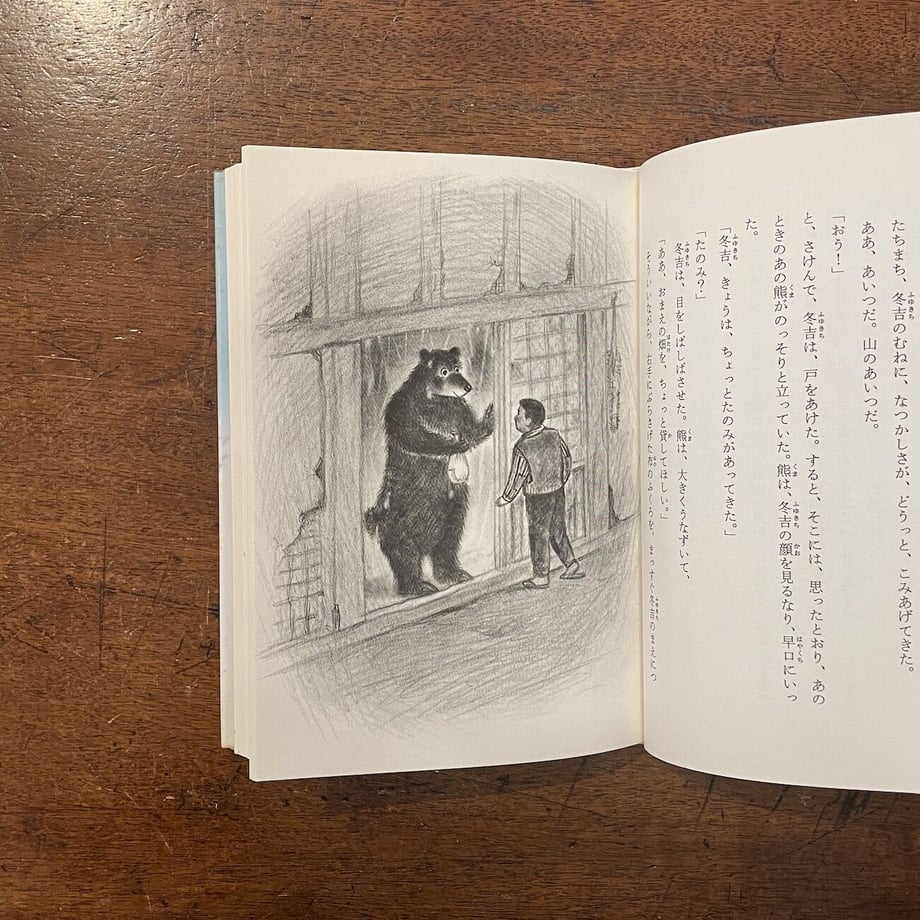 たちまち、冬吉のむねに、なつかしさが、どうっと、こみあげてきた。
ああ、あいつだ。山のあいつだ。
「おう！」
と、さけんで、冬吉は、戸をあけた。すると、そこには、思ったとおり、あの
ときのあの熊がのっそりと立っていた。熊は、冬吉の顔を見るなり、早口にいっ
た。
「冬吉、きょうは、ちょっとたのみがあってきた。」
「たのみ？」
冬吉は、目をしばしばさせた。熊は、大きくうなずいて、
「ああ、おまえの畑を、ちょっと貸してほしい。」
そういいながら、右手にぶらさげた布のふくろを、まっすぐ冬吉のまえにつ